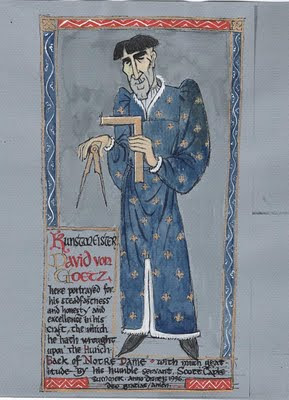 Kunstmeister
David von
Goetz,
here portrayed for
his steadfastness
and honesty and
excellence in his
craft, the which
he hath wrought
upon The Hunch-
back of Notre Dame • with much grat
itude by his humble servant, Scott Caple
Summer Anno Domini 1996
Deo gratias/Amen.